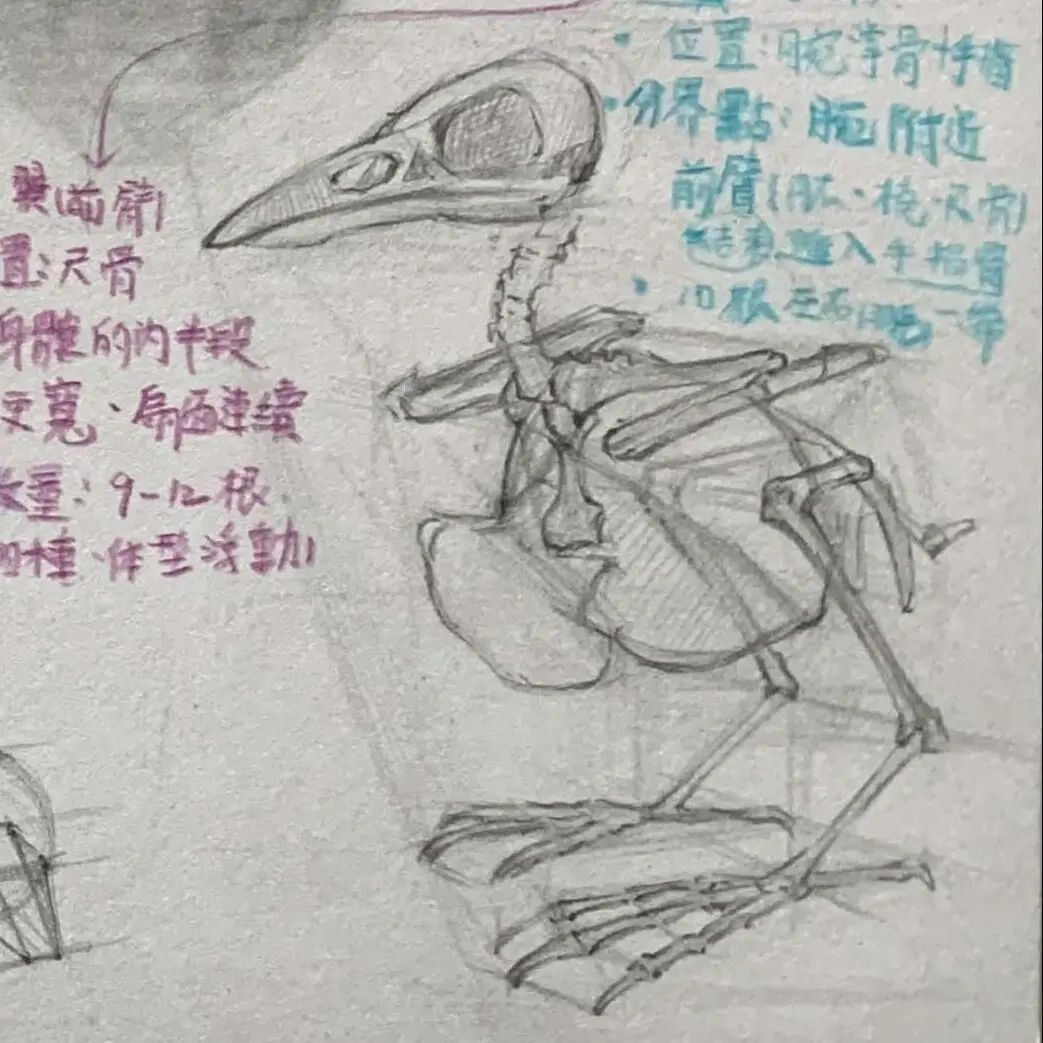 位置:腕掌骨+手指
分界點:腕附近
前臂(肱、橈、尺骨)
進入手指骨
10根左右
翼(前臂)
置:尺骨
身體的內半段
寬、扇面連續
數量:9-12根
種、体型浮動)